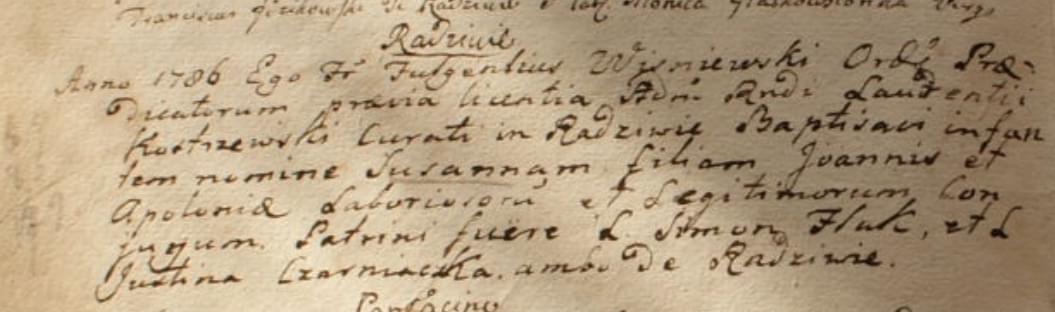 Franciscus de Radziwie Monica Virgo
Radziwie
Anno 1786 Ego Fr Fulgentius Wisniewski Ord9 Præ-
dicatorum prævia licentia Adm Rndi Laurentii
Kostrzewski Curati in Radziwie Baptisavi infan
tem nomine Susannam filiam Joannis et
Apoloniæ Laboriosorũ et Legitimorum Con
jugum. Patrini fuere L. Simon Fluk, et L
Justina Czarniacka. ambo de Radziwie.